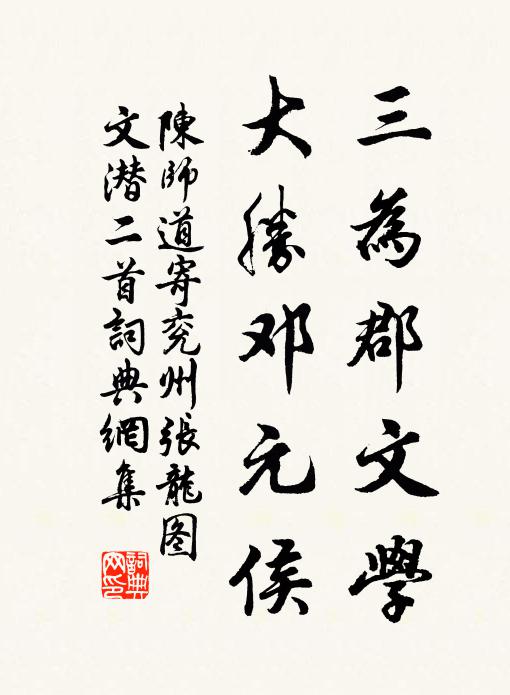 三為郡文學
大勝邓元侯
陳師道寄兖州張龍图
文潜二首詞典網集
詞典
网印